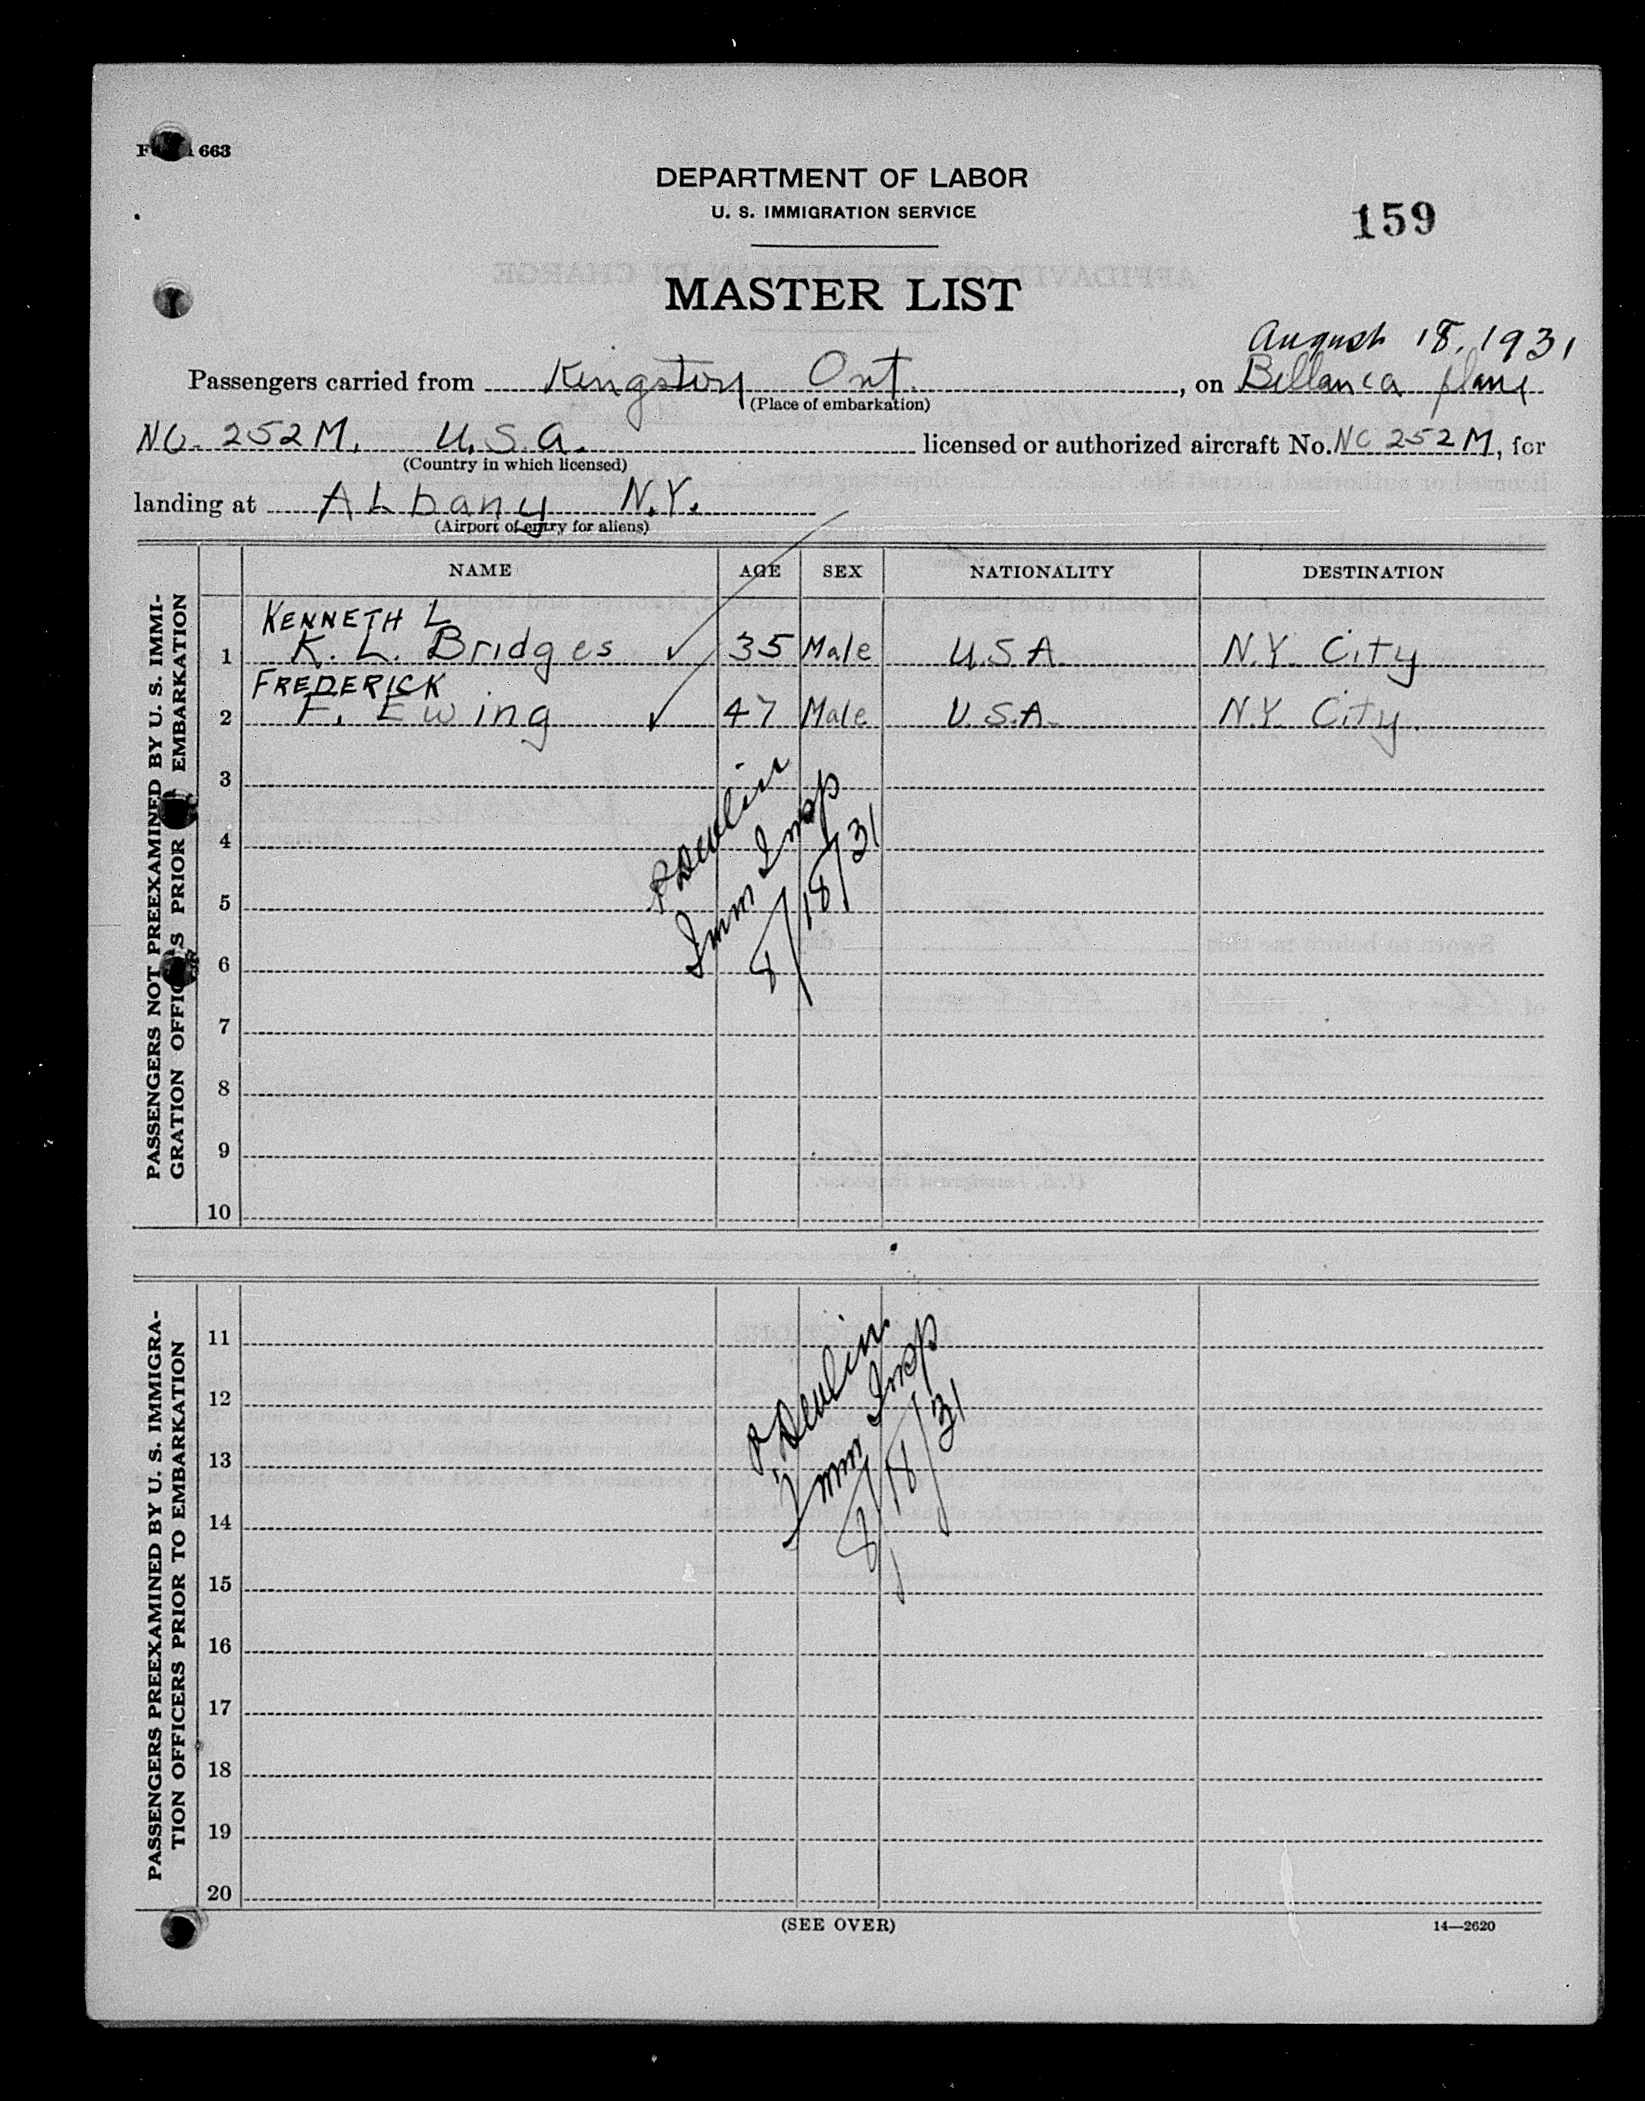 663
DEPARTMENT OF LABOR
U. S. IMMIGRATION SERVICE
159
MASTER LIST
August 18, 1931
Passengers carried from Kingston Ont. , on Bellanca plane
(Place of embarkation)
NC. 252M. U.S.A. licensed or authorized aircraft No. NC 252M, for
(Country in which licensed)
landing at Albany N.Y.
(Airport of entry for aliens)
NAME AGE SEX NATIONALITY DESTINATION
PASSENGERS NOT PREEXAMINED BY U. S. IMMI-
GRATION OFFICERS PRIOR EMBARKATION
KENNETH L
1 K. L. Bridges ✓ 35 Male U.S.A. N.Y. City
FREDERICK
2 F. Ewing ✓ 47 Male U.S.A. N.Y. City.
3
4
5
6
7
8
9
10
Devlin
Imm Insp
8/18/31
PASSENGERS PREEXAMINED BY U. S. IMMIGRA-
TION OFFICERS PRIOR TO EMBARKATION
11
12
13
14
15
16
17
18
19
20
Devlin
Imm Insp
8/18/31
(SEE OVER)
14—2620